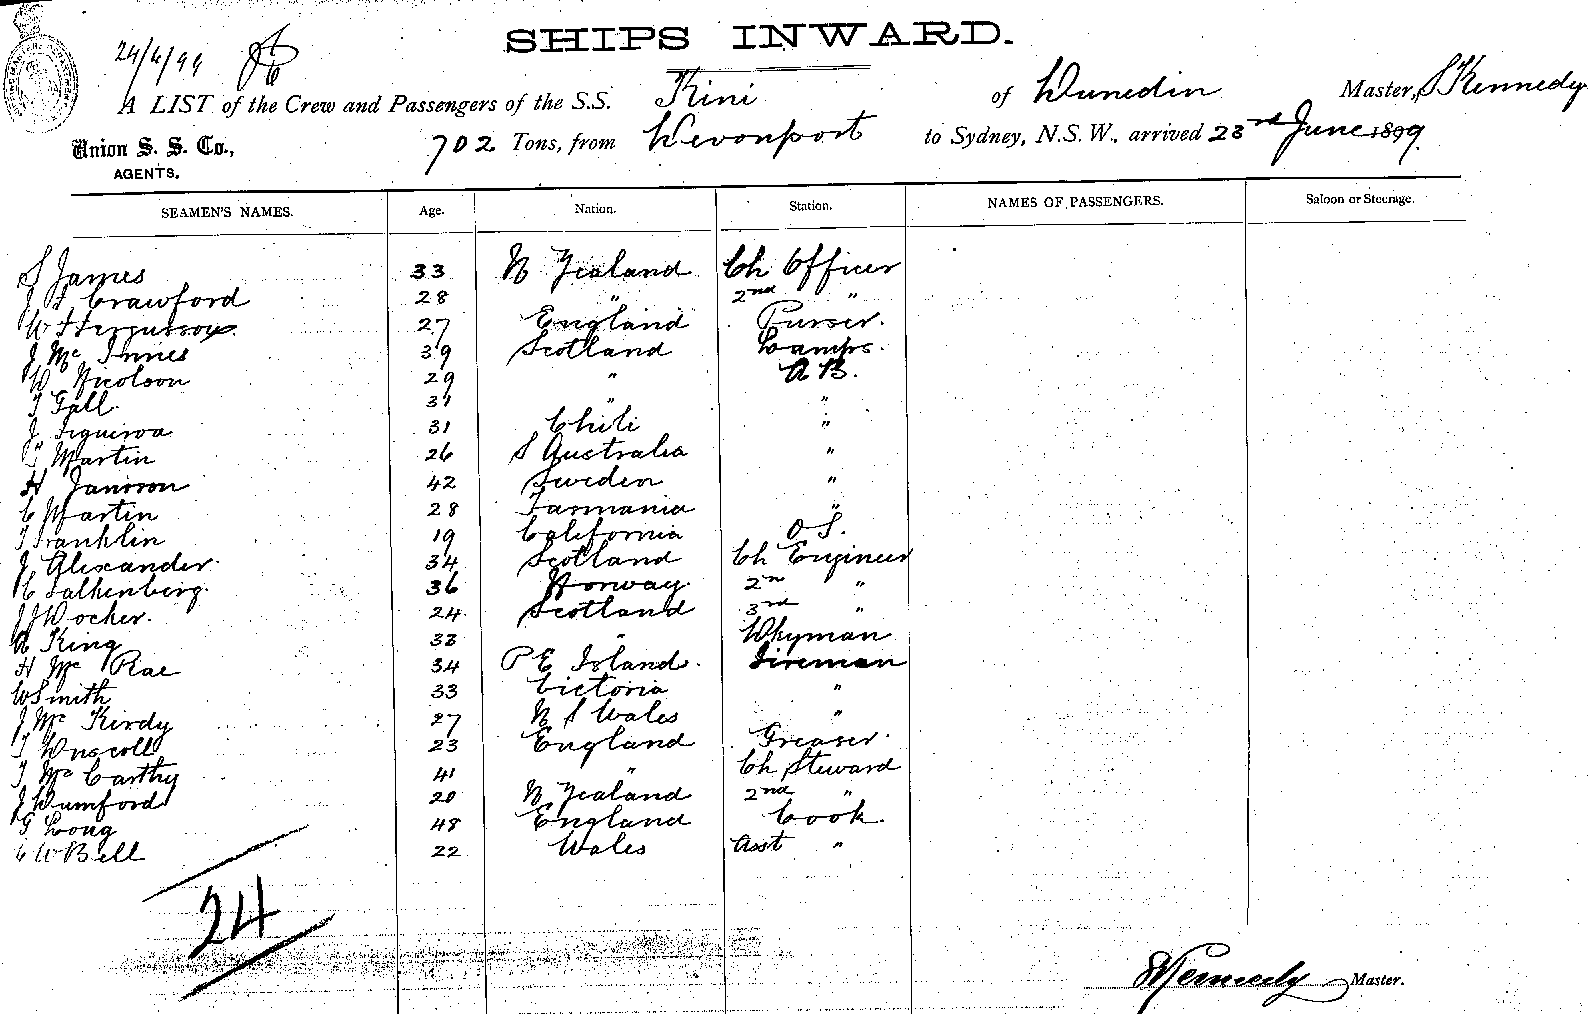 SHIPS INWARD.
24/6/99
A LIST of the Crew and Passengers of the S.S. Kini of Dunedin Master, S Kennedy
Union S. S. Co., AGENTS. 702 Tons, from Devonport to Sydney, N.S.W., arrived 23rd June 1899
SEAMEN'S NAMES. Age. Nation. Station. NAMES OF PASSENGERS. Saloon or Steerage.
S James 33 N Zealand Ch Officer
Crawford 28 " 2nd "
W Fergusson 27 England Purser.
J McInnes 39 Scotland Lamps.
W Nicolson 29 " A B.
T Gall. 31 " "
J Figueroa 31 Chili "
Martin 26 S Australia "
H Jansson 42 Sweden "
C Martin 28 Tasmania "
T Franklin 19 California O S.
J Alexander. 34 Scotland Ch Engineer
C Falkenberg. 36 Norway. 2n "
J J Docher. 24 Scotland 3rd "
A King 33 " Dkyman
H Mc Rae 34 P E Island. Fireman
W Smith 33 Victoria "
J Mc Kirdy 27 N S Wales "
T Driscoll 23 England Greaser.
T Mc Carthy 41 " Ch Steward
J Dumford 20 N Zealand 2nd "
G Long 48 England Cook.
C W Bell 22 Wales Asst "
24
S Kennedy Master.